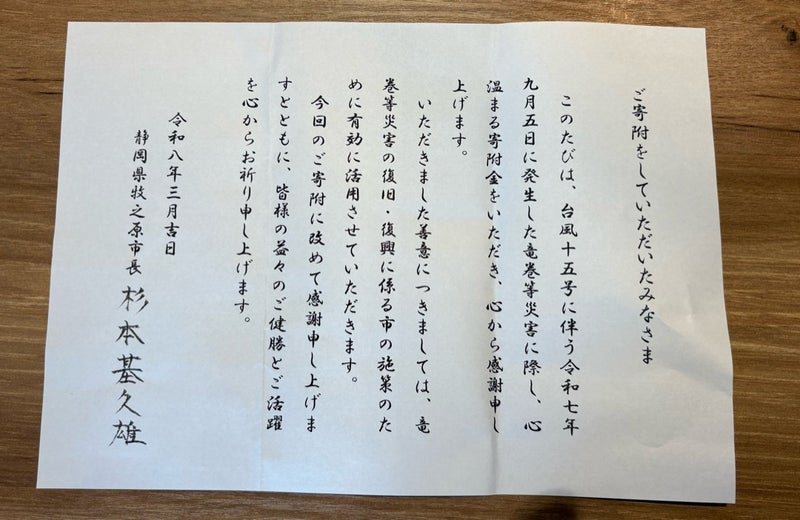 ご寄附をしていただいたみなさま
このたびは、台風十五号に伴う令和七年
九月五日に発生した竜巻等災害に際し、心
温まる寄附金をいただき、心から感謝申し
上げます。
いただきました善意につきましては、竜
巻等災害の復旧・復興に係る市の施策のた
めに有効に活用させていただきます。
今回のご寄附に改めて感謝申し上げま
すとともに、皆様の益々のご健勝とご活躍
を心からお祈り申し上げます。
令和八年三月吉日
静岡県牧之原市長 杉本基久雄